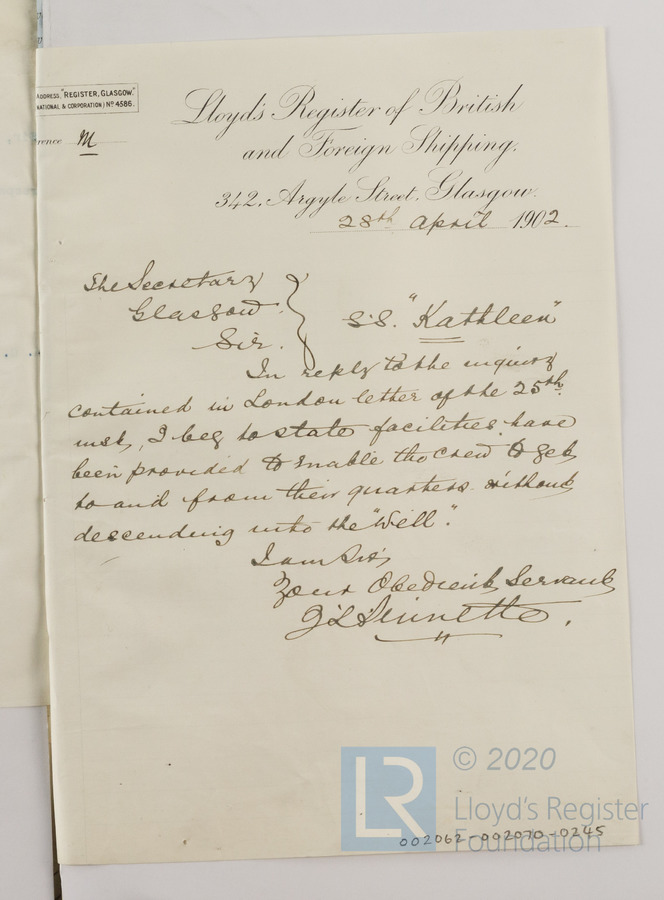 ADDRESS, "REGISTER, GLASGOW."
NATIONAL & CORPORATION) No 4586.
rence M
Lloyd's Register of British
and Foreign Shipping.
342, Argyle Street, Glasgow.
28th April 1902.
The Secretary
Glasgow.
Sir.
S.S. "Kathleen"
In reply to the inquiry
contained in London letter of the 25th
inst, I beg to state facilities have
been provided to enable the crew to get
to and from their quarters without
descending into the "Well".
I am Sir,
Your Obedient Servant
LR
© 2020
Lloyd's Register
Foundation
002062-002070-0245